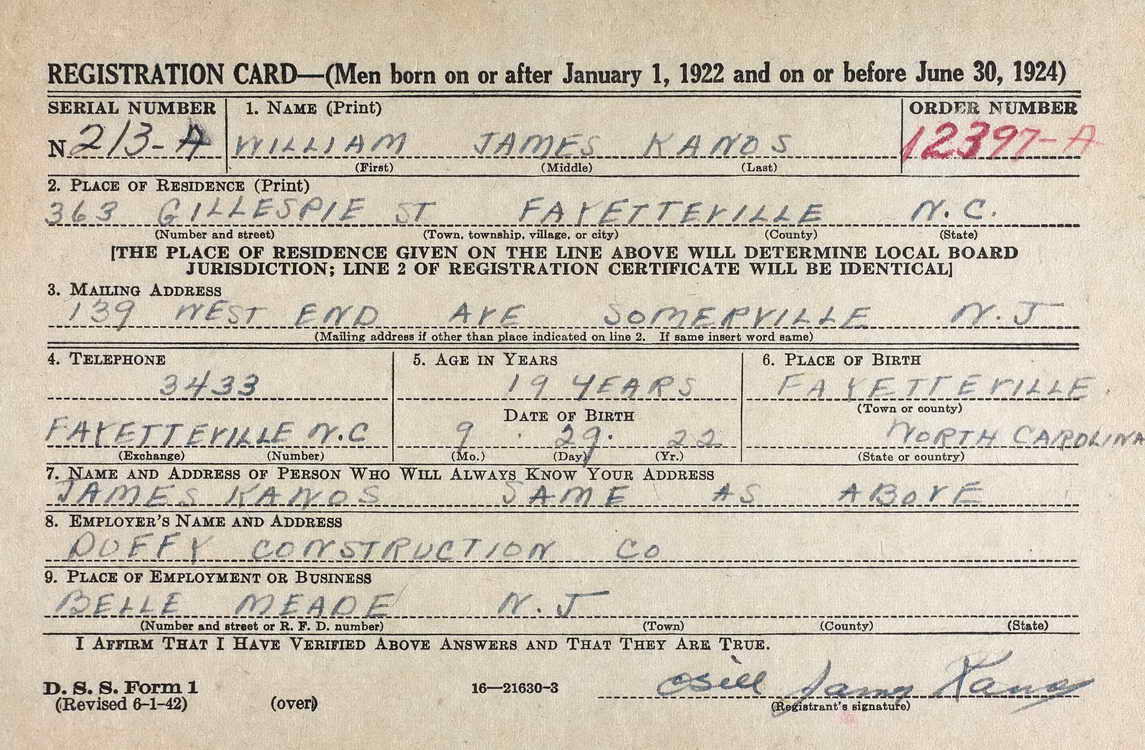 REGISTRATION CARD—(Men born on or after January 1, 1922 and on or before June 30, 1924)
SERIAL NUMBER 1. NAME (Print) ORDER NUMBER
N 213-A WILLIAM JAMES KANOS 12397-A
(First) (Middle) (Last)
2. PLACE OF RESIDENCE (Print)
363 GILLESPIE ST FAYETTEVILLE N.C.
(Number and street) (Town, township, village, or city) (County) (State)
[THE PLACE OF RESIDENCE GIVEN ON THE LINE ABOVE WILL DETERMINE LOCAL BOARD
JURISDICTION; LINE 2 OF REGISTRATION CERTIFICATE WILL BE IDENTICAL]
3. MAILING ADDRESS
139 WEST END AVE SOMERVILLE N.J
(Mailing address if other than place indicated on line 2. If same insert word same)
4. TELEPHONE 5. AGE IN YEARS 6. PLACE OF BIRTH
3433 19 YEARS FAYETTEVILLE
(Town or county)
DATE OF BIRTH
FAYETTEVILLE N.C 9 . 29. 22 NORTH CAROLINA
(Exchange) (Number) (Mo.) (Day) (Yr.) (State or country)
7. NAME AND ADDRESS OF PERSON WHO WILL ALWAYS KNOW YOUR ADDRESS
JAMES KANOS SAME AS ABOVE
8. EMPLOYER'S NAME AND ADDRESS
DUFFY CONSTRUCTION CO
9. PLACE OF EMPLOYMENT OR BUSINESS
BELLE MEADE N.J
(Number and street or R. F. D. number) (Town) (County) (State)
I AFFIRM THAT I HAVE VERIFIED ABOVE ANSWERS AND THAT THEY ARE TRUE.
D. S. S. Form 1 16—21630-3 Bill James Kanos
(Revised 6-1-42) (over) (Registrant's signature)